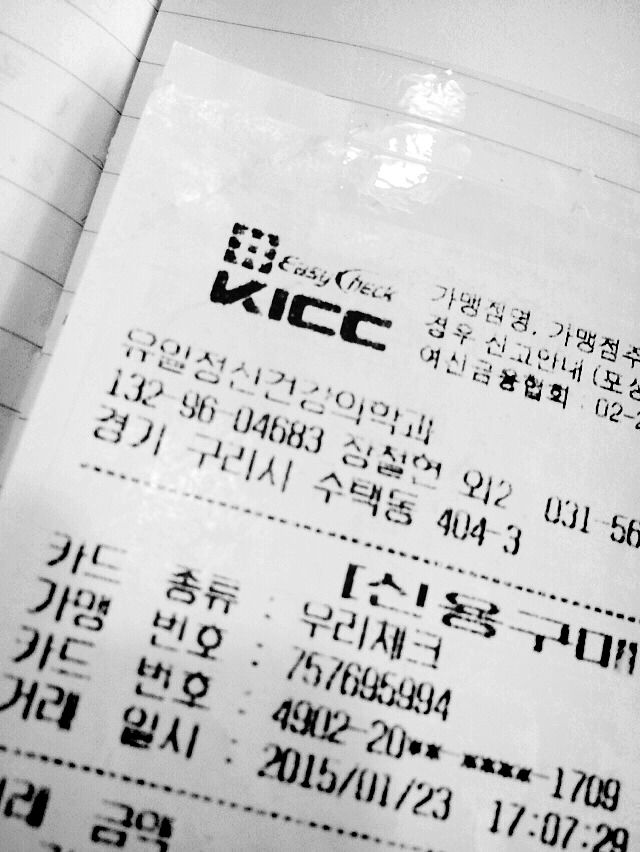 Easy Check
KICC
가맹점명, 가맹점주
경우 신고안내 (포상
여신금융협회 : 02-2
유일정신건강의학과
132-96-04683 장철현 외2 031-56
경기 구리시 수택동 404-3
[신용구매
카드 종류 : 우리체크
가맹 번호 : 757695994
카드 번호 : 4902-20**-****-1709
거래 일시 : 2015/01/23 17:07:29
거래 금액